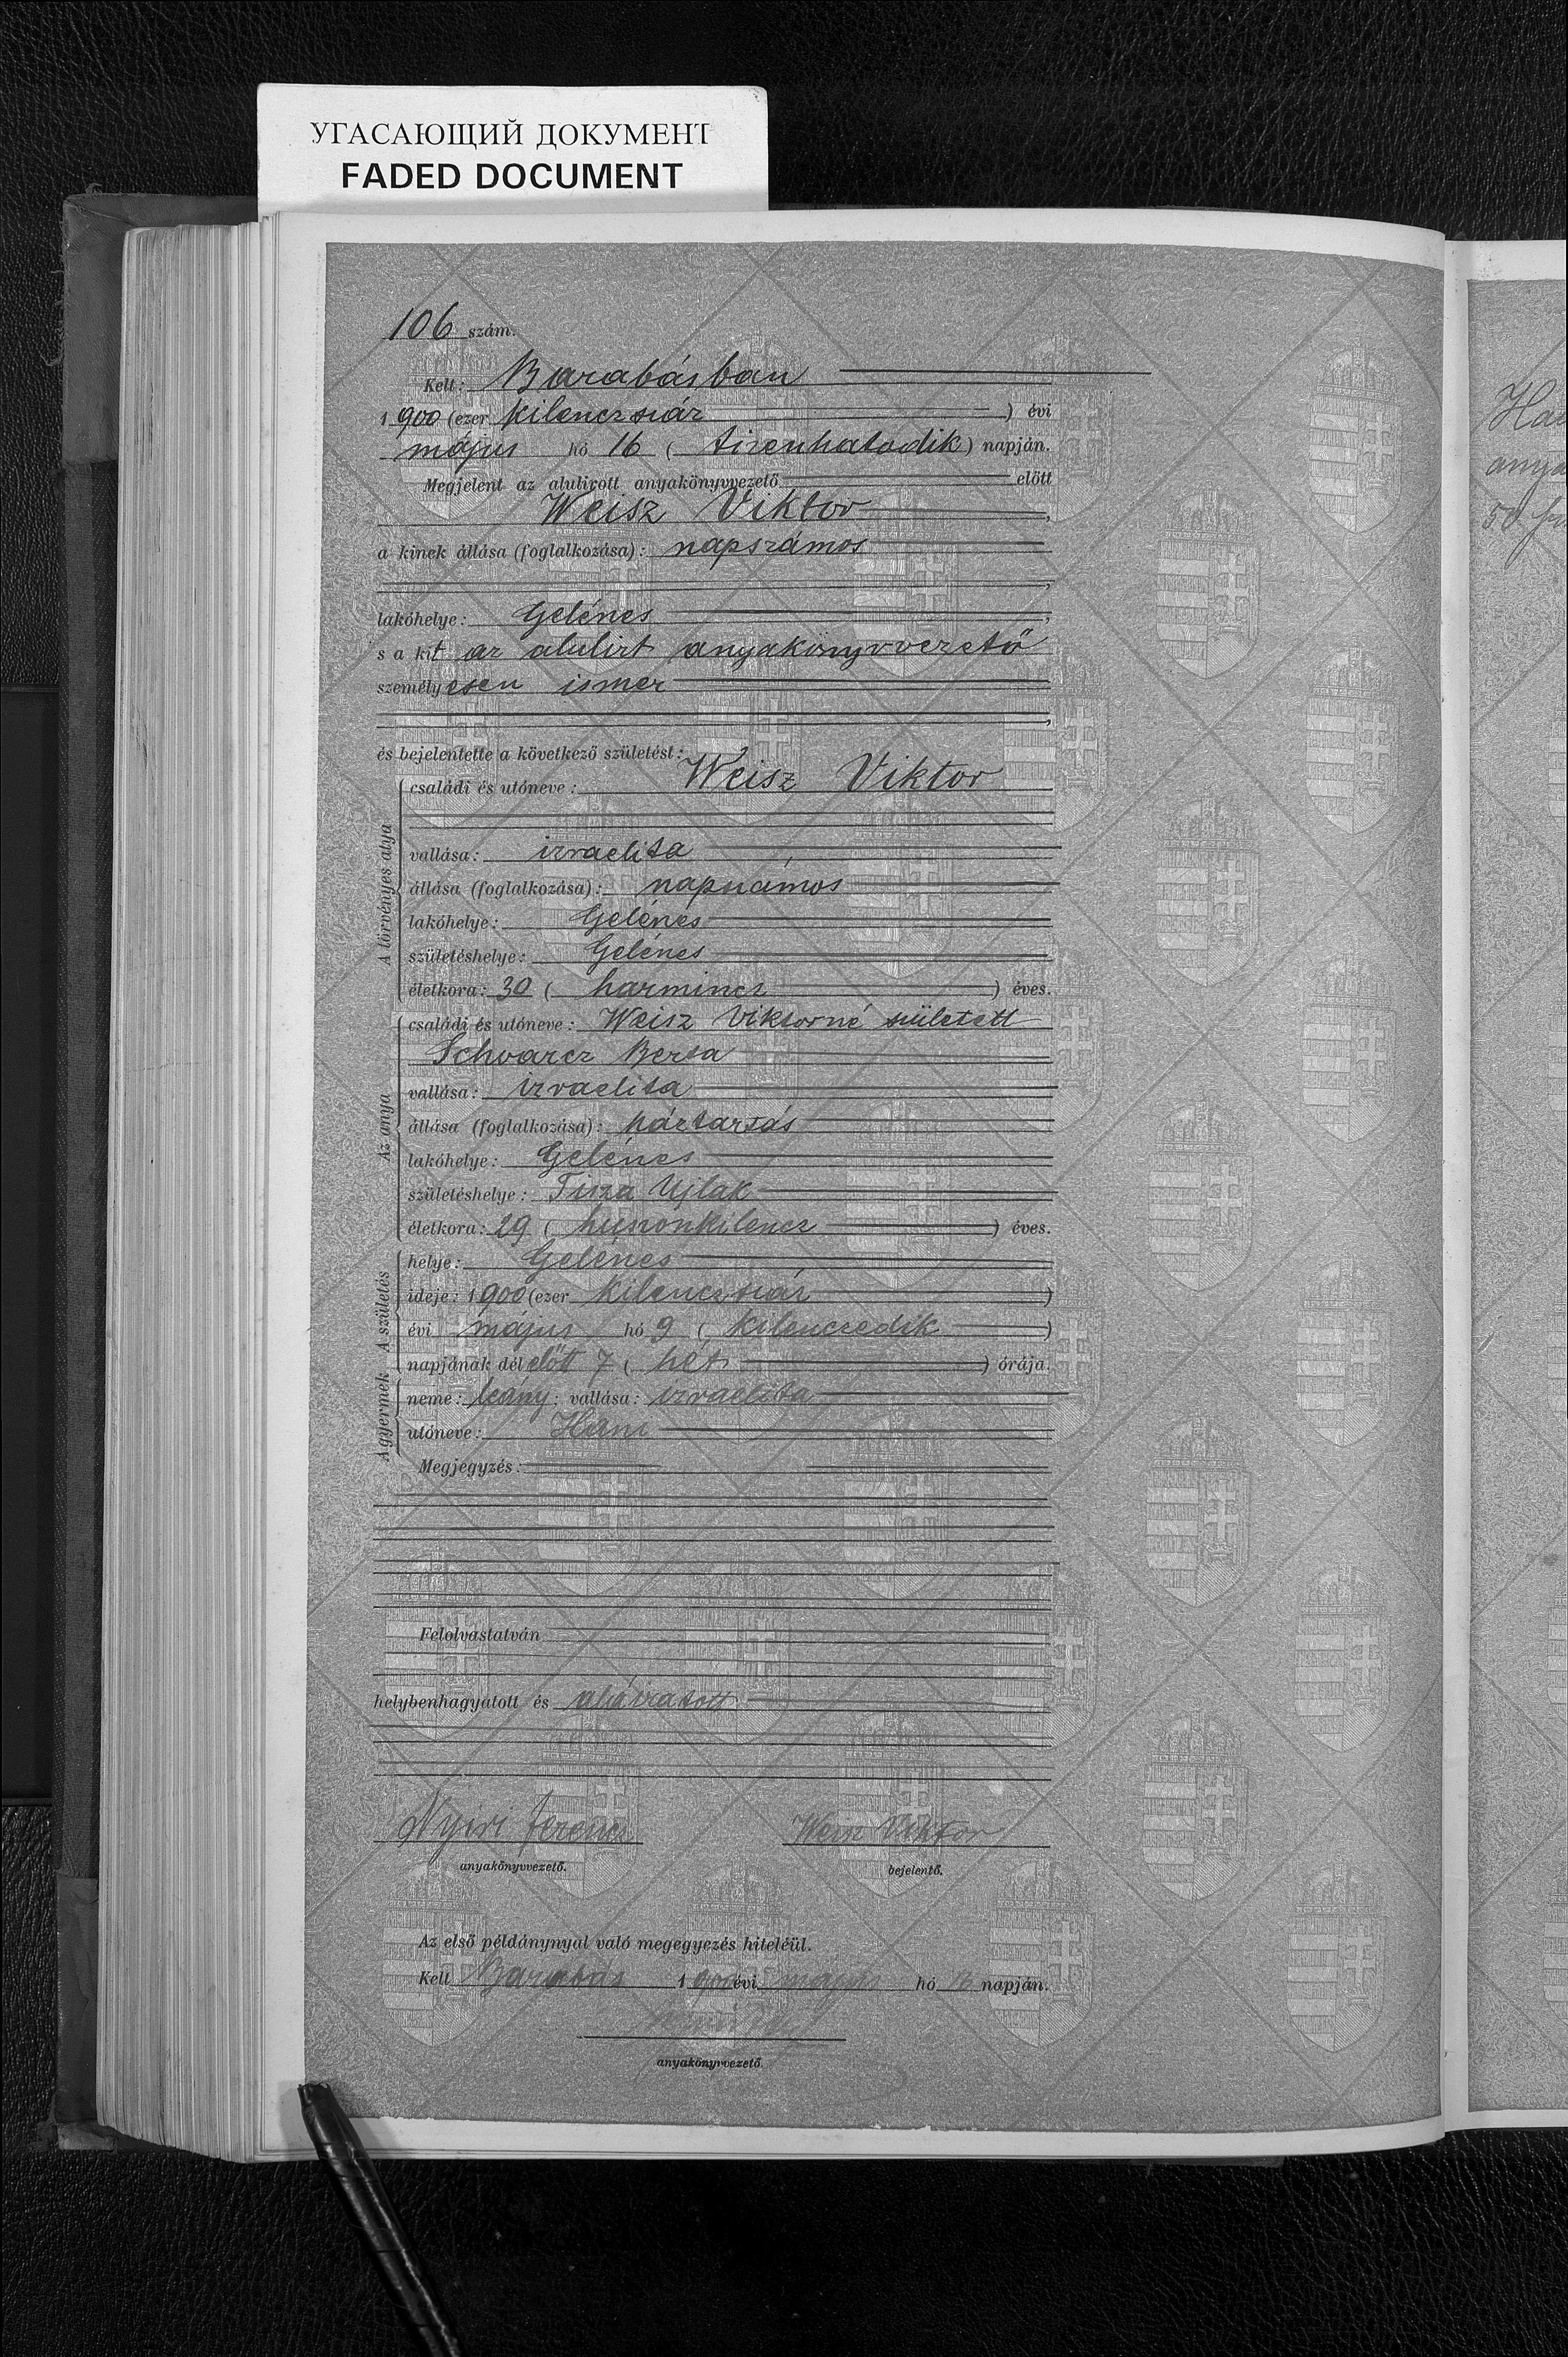 УГАСАЮЩИЙ ДОКУМЕНТ
FADED DOCUMENT
106 szám.
Kelt: Barabásban
1900 (ezer kilenczszáz) évi
május hó 16 (tizenhatodik) napján.
Megjelent az alulirott anyakönyvvezető előtt
Weisz Viktor,
a kinek állása (foglalkozása): napszámos
,
lakóhelye: Gelénes,
s a kit az alulirt anyakönyvvezető
személyesen ismer
,
és bejelentette a következő születést:
A törvényes atya
családi és utóneve: Weisz Viktor
vallása: izraelita
állása (foglalkozása): napszámos
lakóhelye: Gelénes
születéshelye: Gelénes
életkora: 30 (harmincz) éves.
Az anya
családi és utóneve: Weisz Viktorné született
Schvarcz Berta
vallása: izraelita
állása (foglalkozása): háztartás
lakóhelye: Gelénes
születéshelye: Tisza Ujlak
életkora: 29 (huszonkilencz) éves.
A születés
helye: Gelénes
ideje: 1900 (ezer kilenczszáz)
évi május hó 9 (kilenczedik)
napjának délelőtt 7 (hét) órája.
A gyermek
neme: leány; vallása: izraelita
utóneve: Hani
Megjegyzés:
Felolvastatván
helybenhagyatott és aláíratott
Nyiri Ferencz Weisz Viktor
anyakönyvvezető. bejelentő.
Az első példánynyal való megegyezés hiteléül.
Kelt Barabás 1900 évi május hó 16 napján.
anyakönyvvezető.